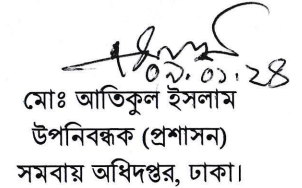 ০৯.০১.২৪
মোঃ আতিকুল ইসলাম
উপনিবন্ধক (প্রশাসন)
সমবায় অধিদপ্তর, ঢাকা।